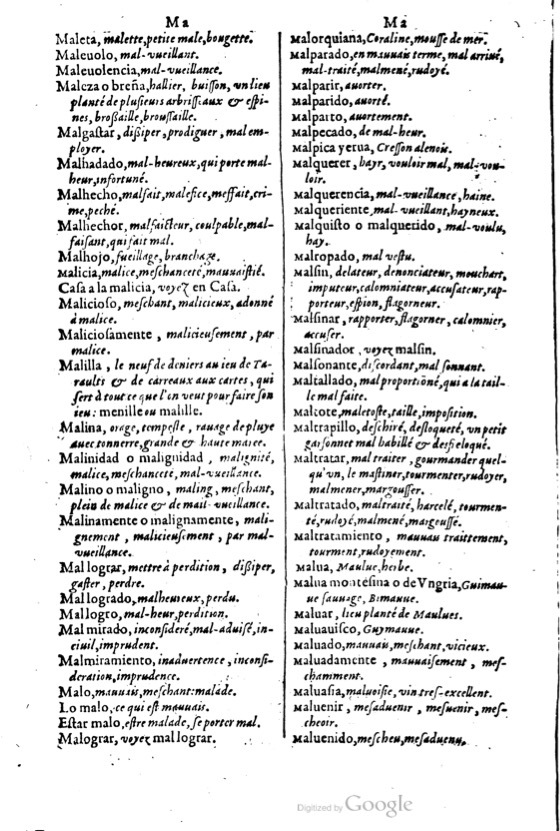 Ma
Maleta, malette, petite male, bougette.
Maleuolo, mal-vueillant.
Maleuolencia, mal-vueillance.
Malcza o breña, hallier, buisson, vn lieu
planté de plusieurs arbrisseaux & espi-
nes, brossaille, broussaille.
Malgastar, dissiper, prodiguer, mal em-
ployer.
Malhadado, mal-heureux, qui porte mal-
heur, infortuné.
Malhecho, malfait, malefice, meffait, cri-
me, peché.
Malhechor, malfaicteur, coulpable, mal-
faisant, qui fait mal.
Malhojo, fueillage, branchage.
Malicia, malice, meschanceté, mauuaistié.
Casa a la malicia, voyez en Casa.
Malicioso, meschant, malicieux, adonné
à malice.
Maliciosamente, malicieusement, par
malice.
Malilla, le neuf de deniers au ieu de Ta-
raults & de carreaux aux cartes, qui
sert à tout ce que l'on veut pour faire son
ieu: menille ou malille.
Malina, orage, tempeste, rauage de pluye
auec tonnerre, grande & haute maree.
Malinidad o malignidad, malignité,
malice, meschanceté, mal-vueillance.
Malino o maligno, maling, meschant,
plein de malice & de mail-vueillance.
Malinamente o malignamente, mali-
gnement, malicieusement, par mal-
vueillance.
Mal lograr, mettre à perdition, dissiper,
gaster, perdre.
Mal logrado, malheureux, perdu.
Mal logro, mal-heur, perdition.
Mal mirado, inconsideré, mal-aduisé, in-
ciuil, imprudent.
Malmiramiento, inaduertence, inconsi-
deration, imprudence.
Malo, mauuais, meschant: malade.
Lo malo, ce qui est mauuais.
Estar malo, estre malade, se porter mal.
Malograr, voyez mal lograr.
Ma
Malorquiana, Coraline, mousse de mer.
Malparado, en mauuais terme, mal arriué,
mal-traité, malmené, rudoyé.
Malparir, auorter.
Malparido, auorté.
Malparto, auortement.
Malpecado, de mal-heur.
Malpica yerua, Cresson alenois.
Malquerer, hayr, vouloir mal, mal-vou-
loir.
Malquerencia, mal-vueillance, haine.
Malqueriente, mal-vueillant, hayneux.
Malquisto o malquerido, mal-voulu,
hay.
Malropado, mal vestu.
Malsin, delateur, denonciateur, mouchart,
imputeur, calomniateur, accusateur, rap-
porteur, espion, flagorneur.
Malsinar, rapporter, flagorner, calomnier,
accuser.
Malsinador, voyez malsin.
Malsonante, discordant, mal sonnant.
Maltallado, mal proportioné, qui a la tail-
le mal faite.
Maltote, maletoste, taille, imposition.
Maltrapillo, deschiré, desloqueté, vn petit
garsonnet mal babillé & desfieloqué.
Maltratar, mal traiter, gourmander quel-
qu'vn, le mastiner, tourmenter, rudoyer,
malmener, margousser.
Maltratado, maltraité, harcelé, tourmen-
té, rudoyé, malmené, margoussé.
Maltratamiento, mauuau traittement,
tourment, rudoyement.
Malua, Maulue, herbe.
Malua montesina o de Vngria, Guimau-
ue sauuage, Bimauue.
Maluar, lieu planté de Maulues.
Maluauisco, Guymauue.
Maluado, mauuais, meschant, vicieux.
Maluadamente, mauuaisement, mes-
chamment.
Maluasia, maluoisie, vin tres-excellent.
Maluenir, mesaduenir, mesuenir, mes-
cheoir.
Maluenido, mescheu, mesaduenu.
Digitized by Google